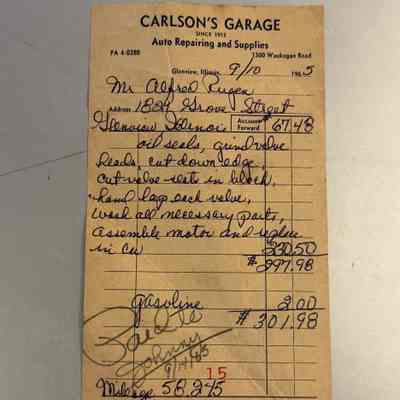 CARLSON'S GARAGE
SINCE 1913
Auto Repairing and Supplies
PA 4-0280 1500 Waukegan Road
Glenview, Illinois, 9/10 1965
Mr Alfred
Address 1824 Grove Street
Glenview Illinois Account Forward $67.48
oil seals, grind valve
heads, cut down edge,
cut valve seats in block,
hand lap each valve,
wash all necessary parts,
assemble motor and replace
in car 230.50
$297.98
gasoline 2.00
$301.98
Paid to
Johnny
9/14/65
15
Mileage 58,245